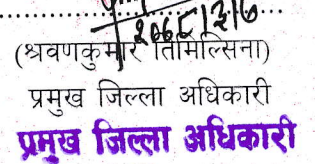 २०६८|३|७
(श्रवणकुमार तिमिल्सिना)
प्रमुख जिल्ला अधिकारी
प्रमुख जिल्ला अधिकारी